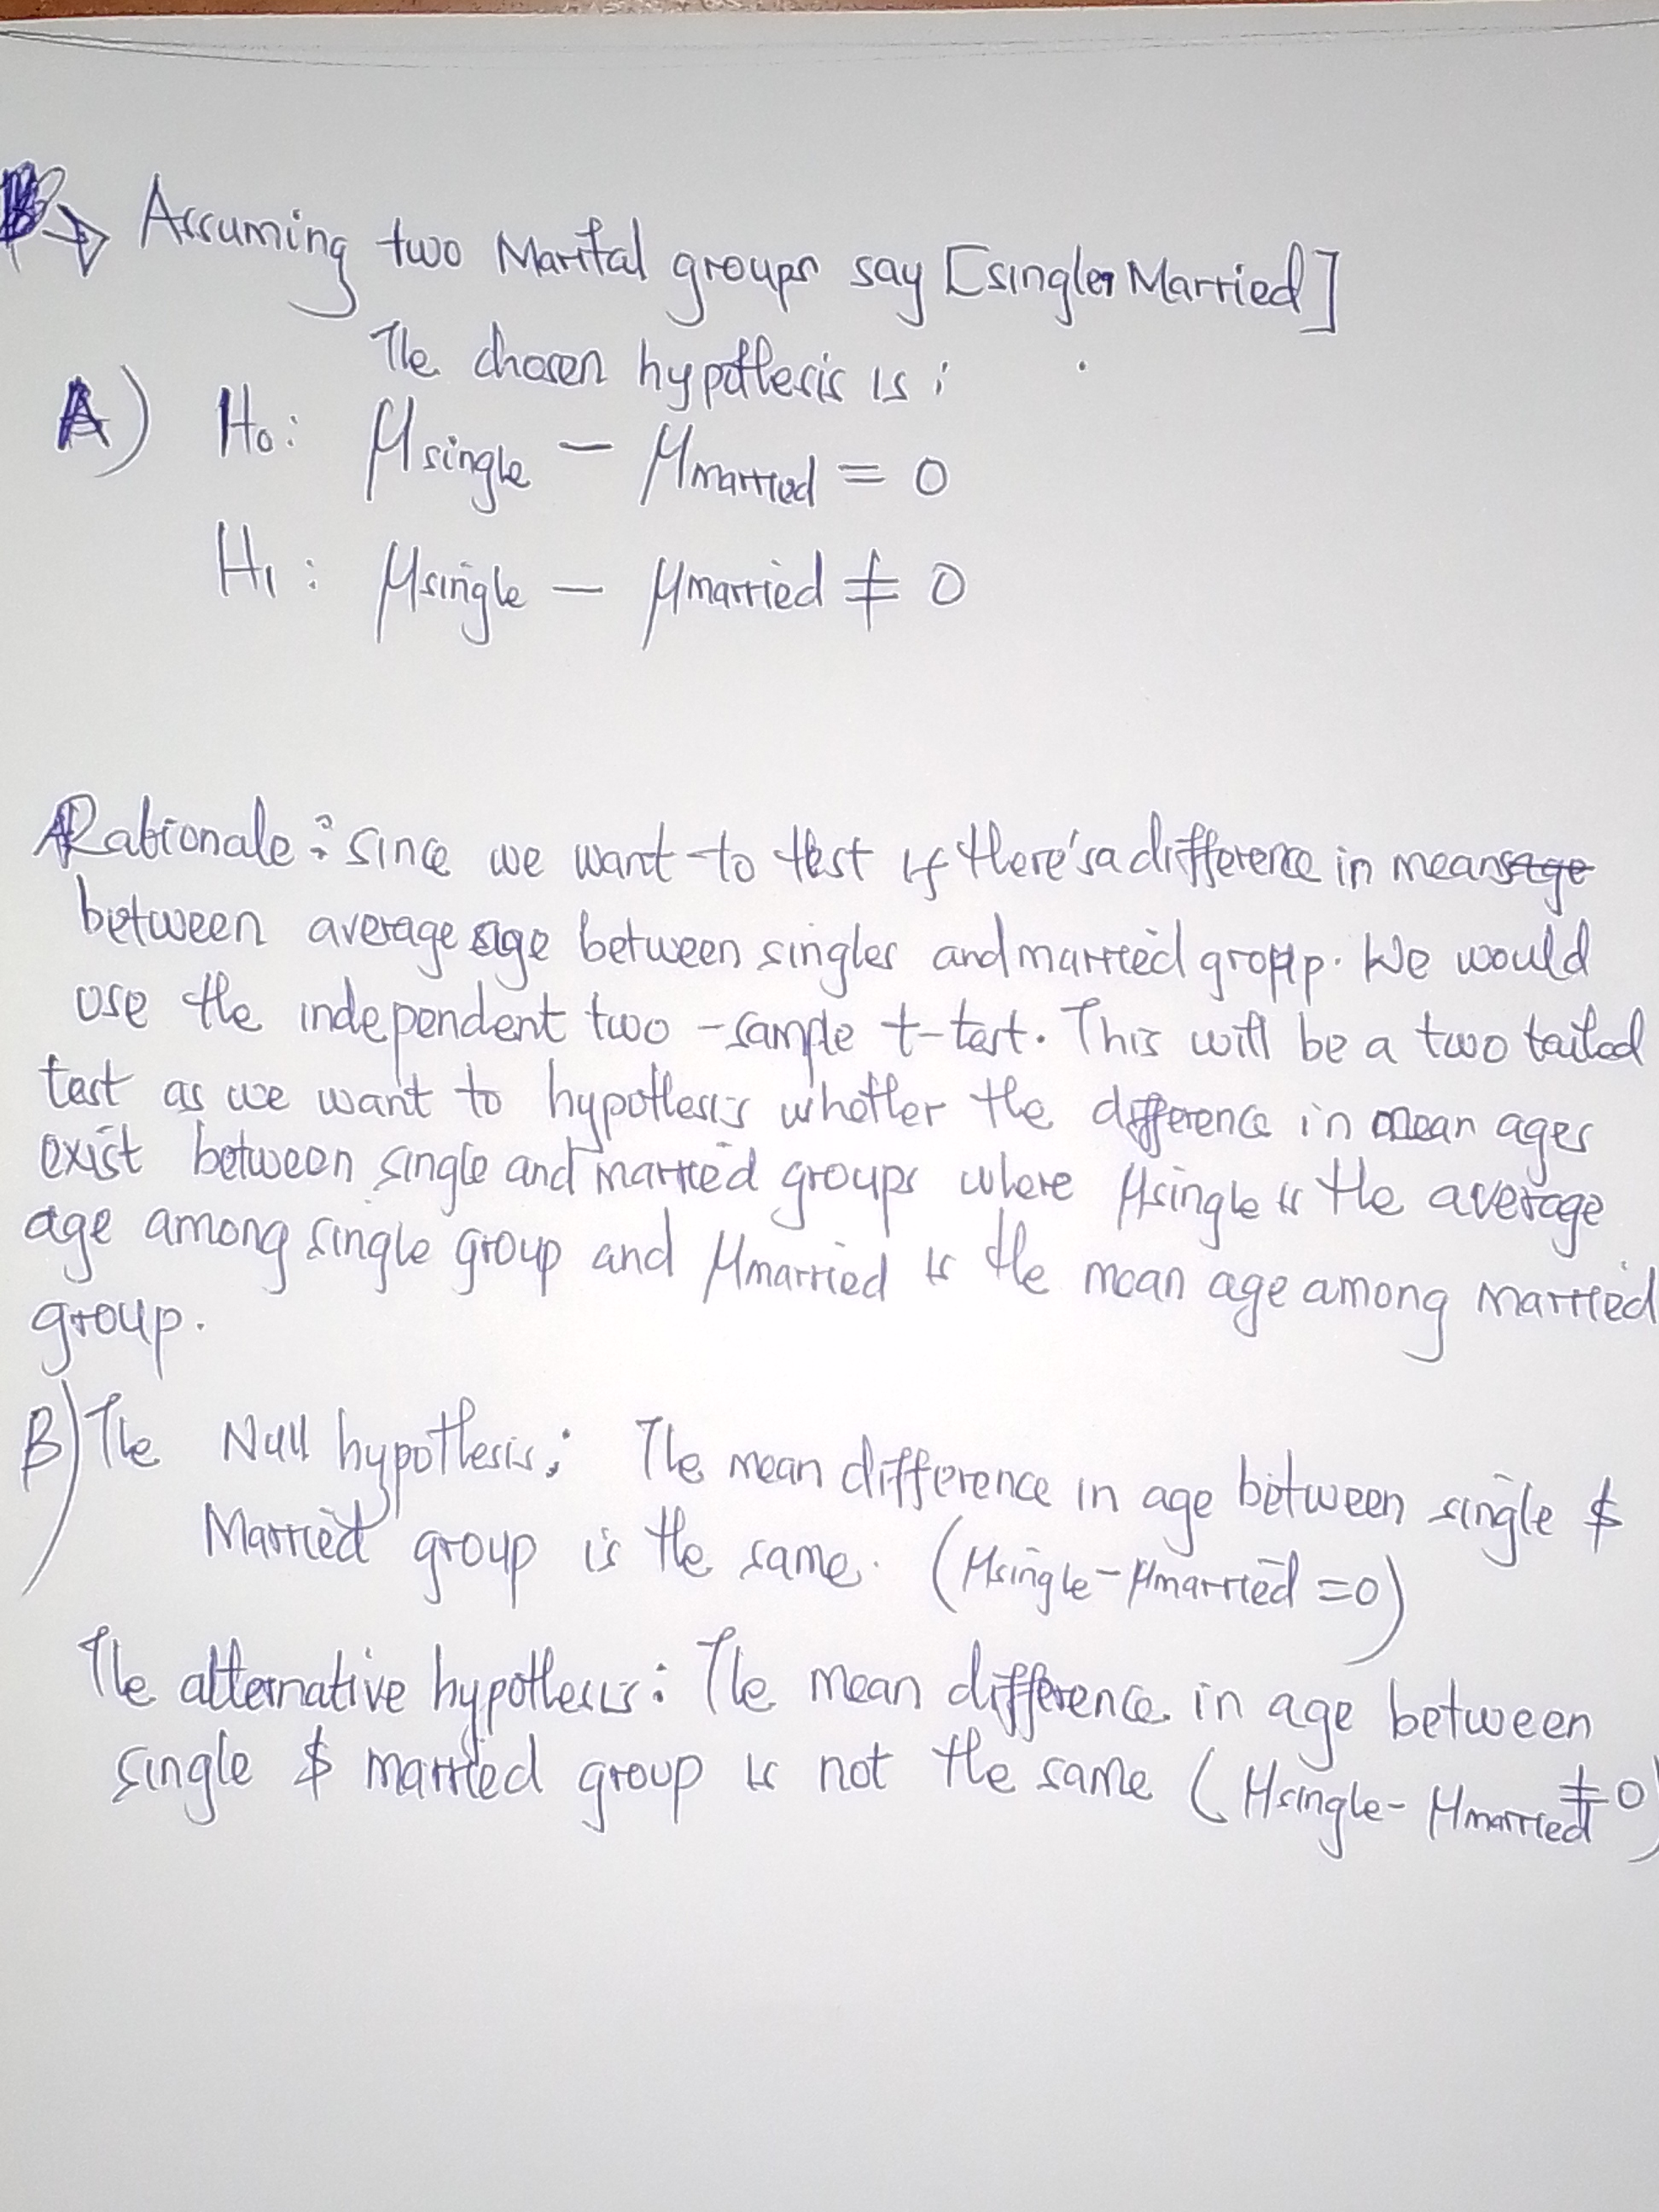 Assuming two Marital groups say [singles Married]
The chosen hypothesis is :
A) H₀: μsingle − μmarried = 0
H₁: μsingle − μmarried ≠ 0
Rationale: since we want to test if there's a difference in means
between average age between singles and married group. We would
use the independent two-sample t-test. This will be a two tailed
test as we want to hypothesis whether the difference in mean ages
exist between single and married groups where μsingle is the average
age among single group and μmarried is the mean age among married
group.
B) The Null hypothesis; The mean difference in age between single $
Married group is the same. (μsingle-μmarried =0)
The alternative hypothesis: The mean difference in age between
single $ married group is not the same (μsingle- μmarried ≠0)